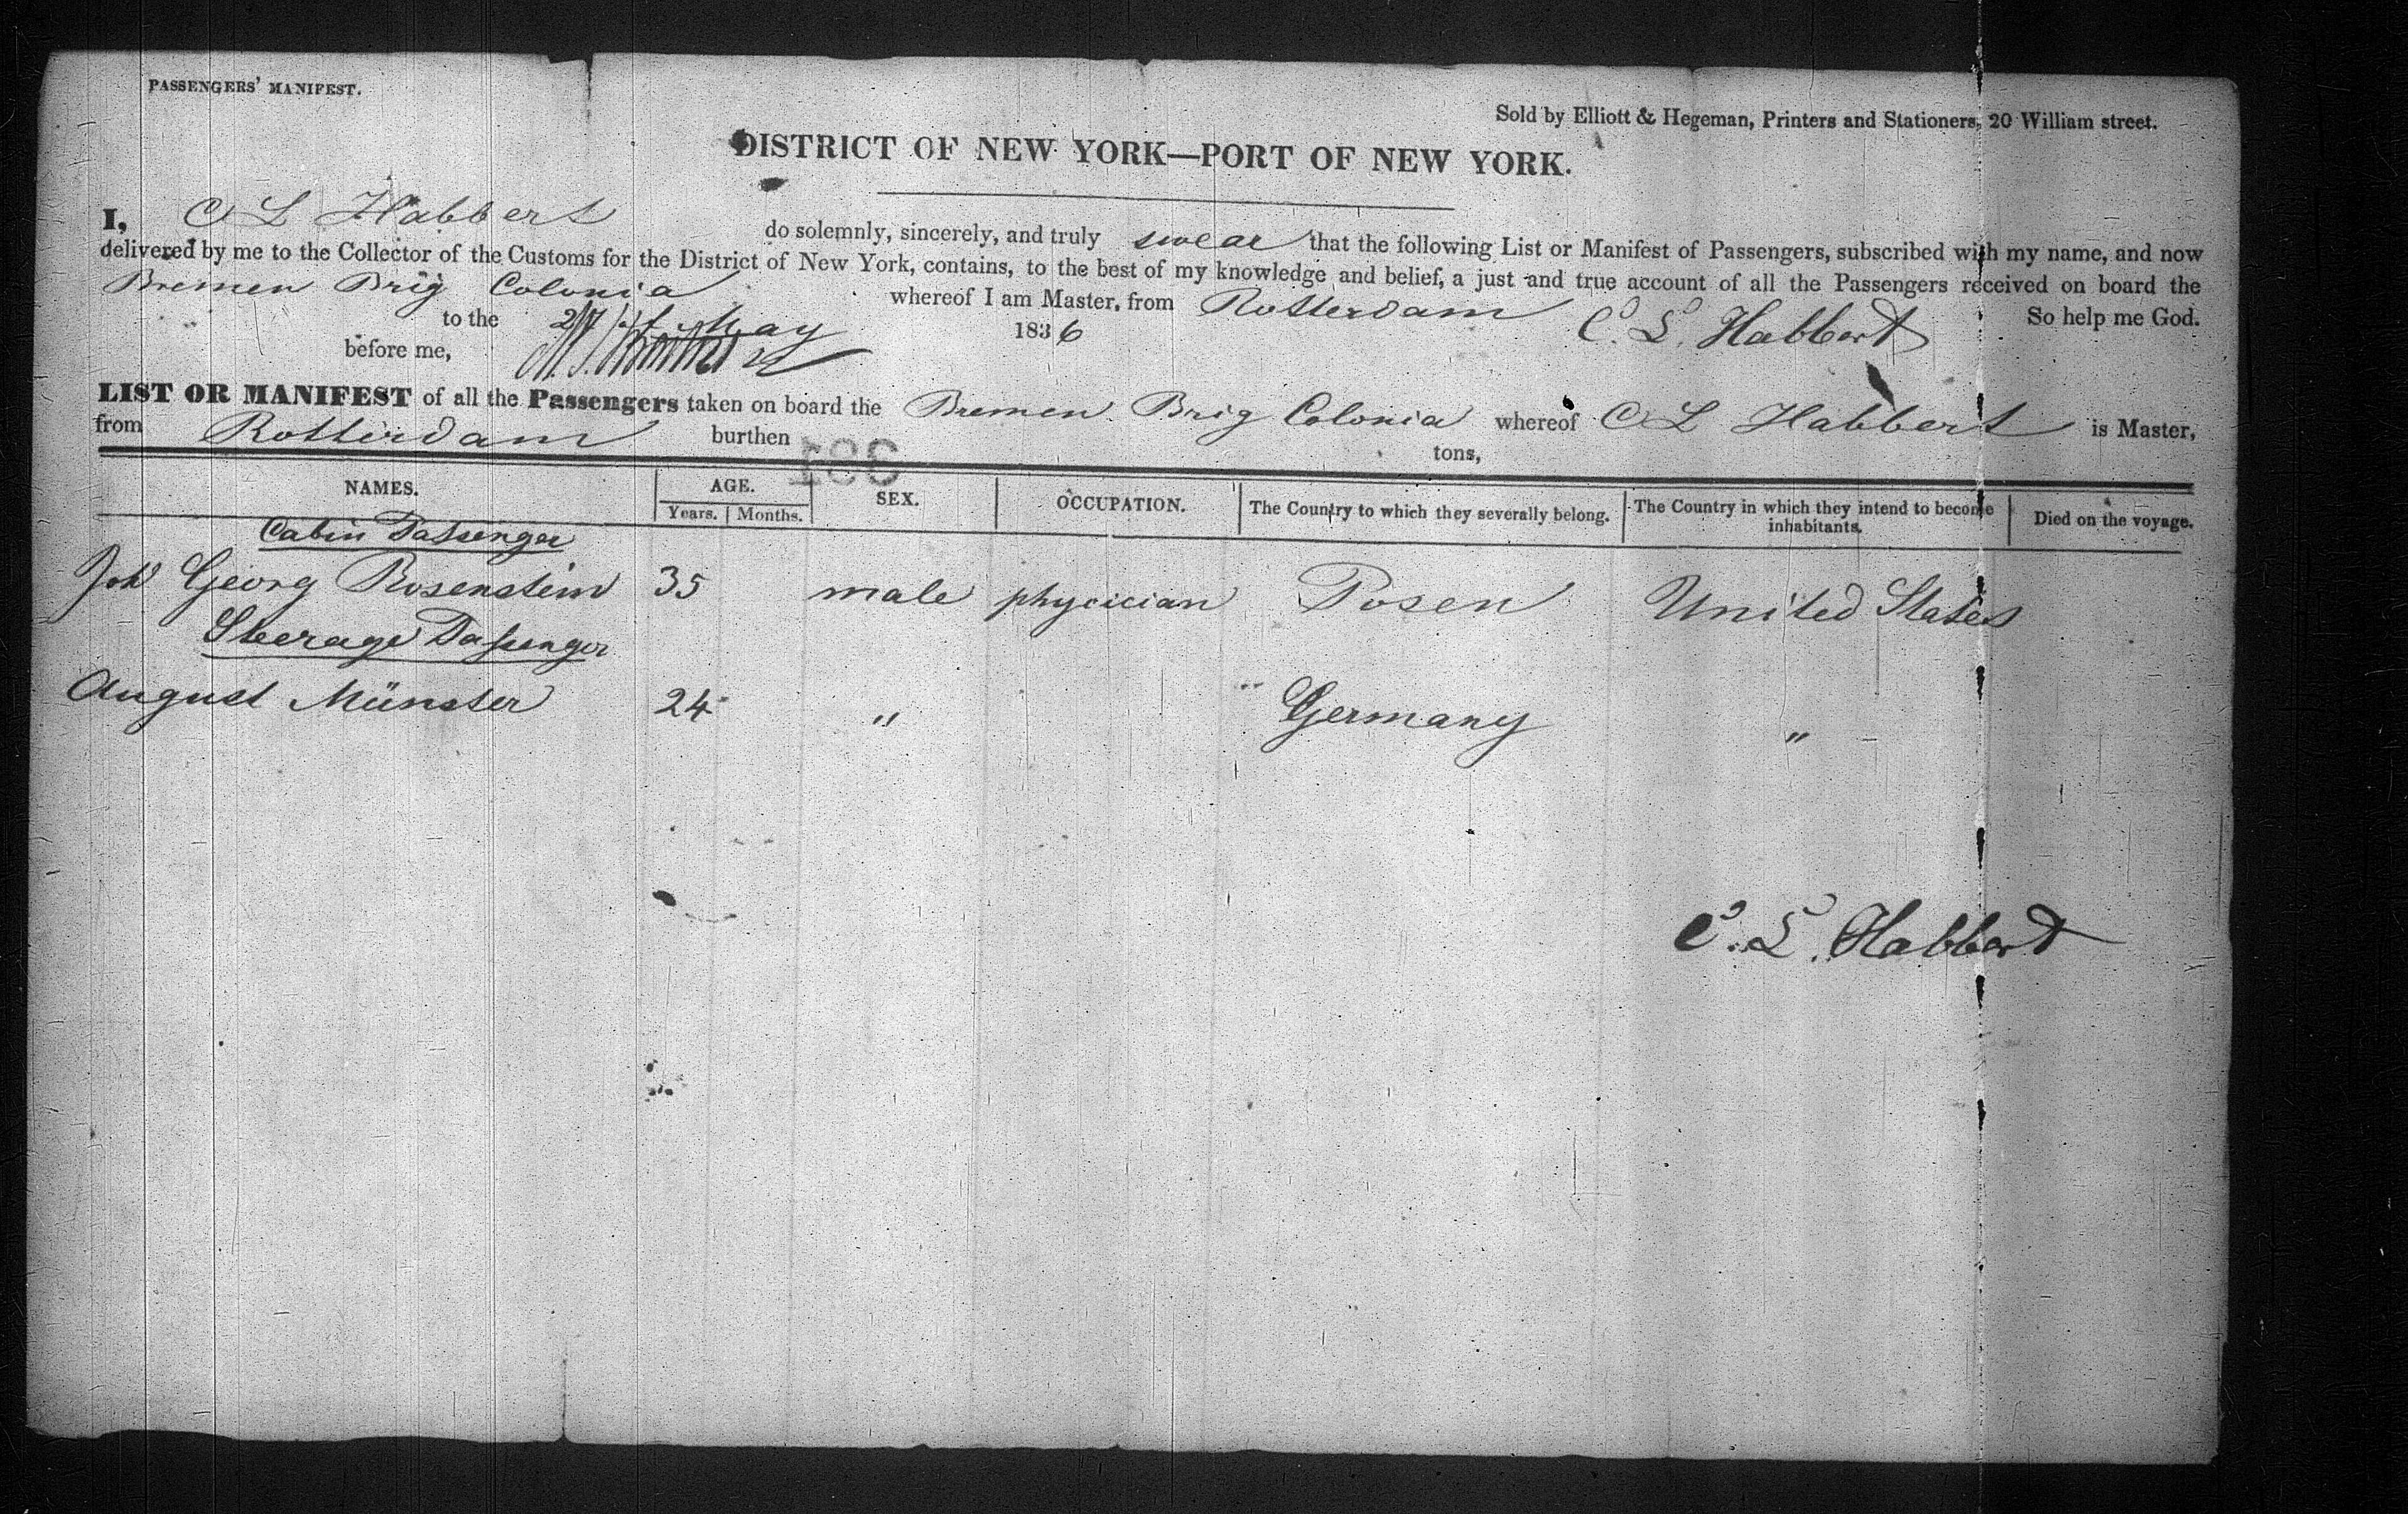 PASSENGERS' MANIFEST.
Sold by Elliott & Hegeman, Printers and Stationers, 20 William street.
DISTRICT OF NEW YORK—PORT OF NEW YORK.
I, C L Habbert do solemnly, sincerely, and truly swear that the following List or Manifest of Passengers, subscribed with my name, and now
delivered by me to the Collector of the Customs for the District of New York, contains, to the best of my knowledge and belief, a just and true account of all the Passengers received on board the
Bremen Brig Colonia whereof I am Master, from Rotterdam
to the 27 May 1836 C. L. Habbert So help me God.
before me,
LIST OR MANIFEST of all the Passengers taken on board the Bremen Brig Colonia whereof C L Habbert is Master,
from Rotterdam burthen tons,
381
NAMES. AGE. SEX. OCCUPATION. The Country to which they severally belong. The Country in which they intend to become inhabitants. Died on the voyage.
Years. Months.
Cabin Passenger
Joh Georg Rosenstein 35 male phycician Posen United States
Steerage Passenger
August Münster 24 " Germany "
C. L. Habbert